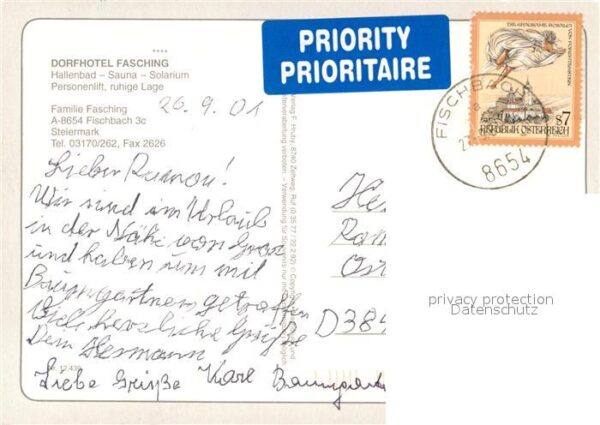 ****
DORFHOTEL FASCHING
Hallenbad – Sauna – Solarium
Personenlift, ruhige Lage
Familie Fasching
A-8654 Fischbach 3c
Steiermark
Tel. 03170/262, Fax 2626
26.9.01
PRIORITY
PRIORITAIRE
S7
REPUBLIK ÖSTERREICH
FISCHBACH
8654
Lieber Ramon!
Wir sind im Urlaub
in der Nähe von Graz
und haben uns mit
Baumgartnern getroffen
Viele herzliche Grüße
Dein Hermann
Liebe Grüße Karl Baumgart
He
Ram
Ost
D384
privacy protection
Datenschutz